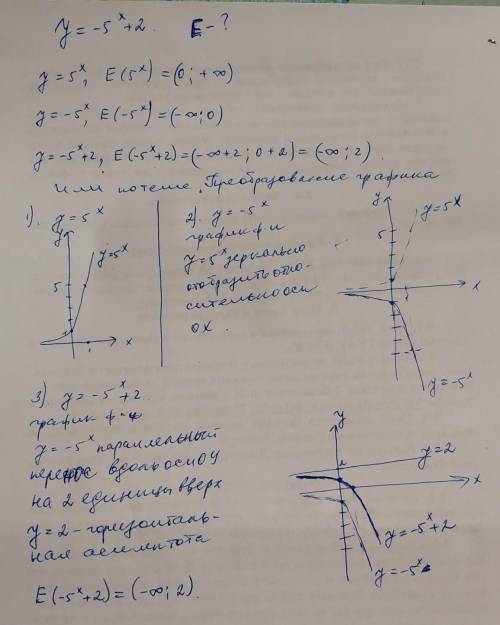 y = -5ˣ+2. E-?
y=5ˣ, E(5ˣ) = (0; +∞)
y=-5ˣ, E(-5ˣ)=(-∞; 0)
y=-5ˣ+2, E(-5ˣ+2)=(-∞+2; 0+2)=(-∞; 2).
Или Преобразование графика
1). y=5ˣ
y
y=5ˣ
5
1
x
2). y = -5ˣ
график ф-и
y=5ˣ зеркально
отобразить отно-
сительно оси
ох.
y
y=5ˣ
5
x
y=-5ˣ
3) y = -5ˣ+2
график ф-и
y = -5ˣ параллельный
перенос вдоль оси оу
на 2 единицы вверх
y=2 - горизонталь-
ная асимптота
E(-5ˣ+2) = (-∞; 2).
y
y=2
x
y=-5ˣ+2
y=-5ˣ